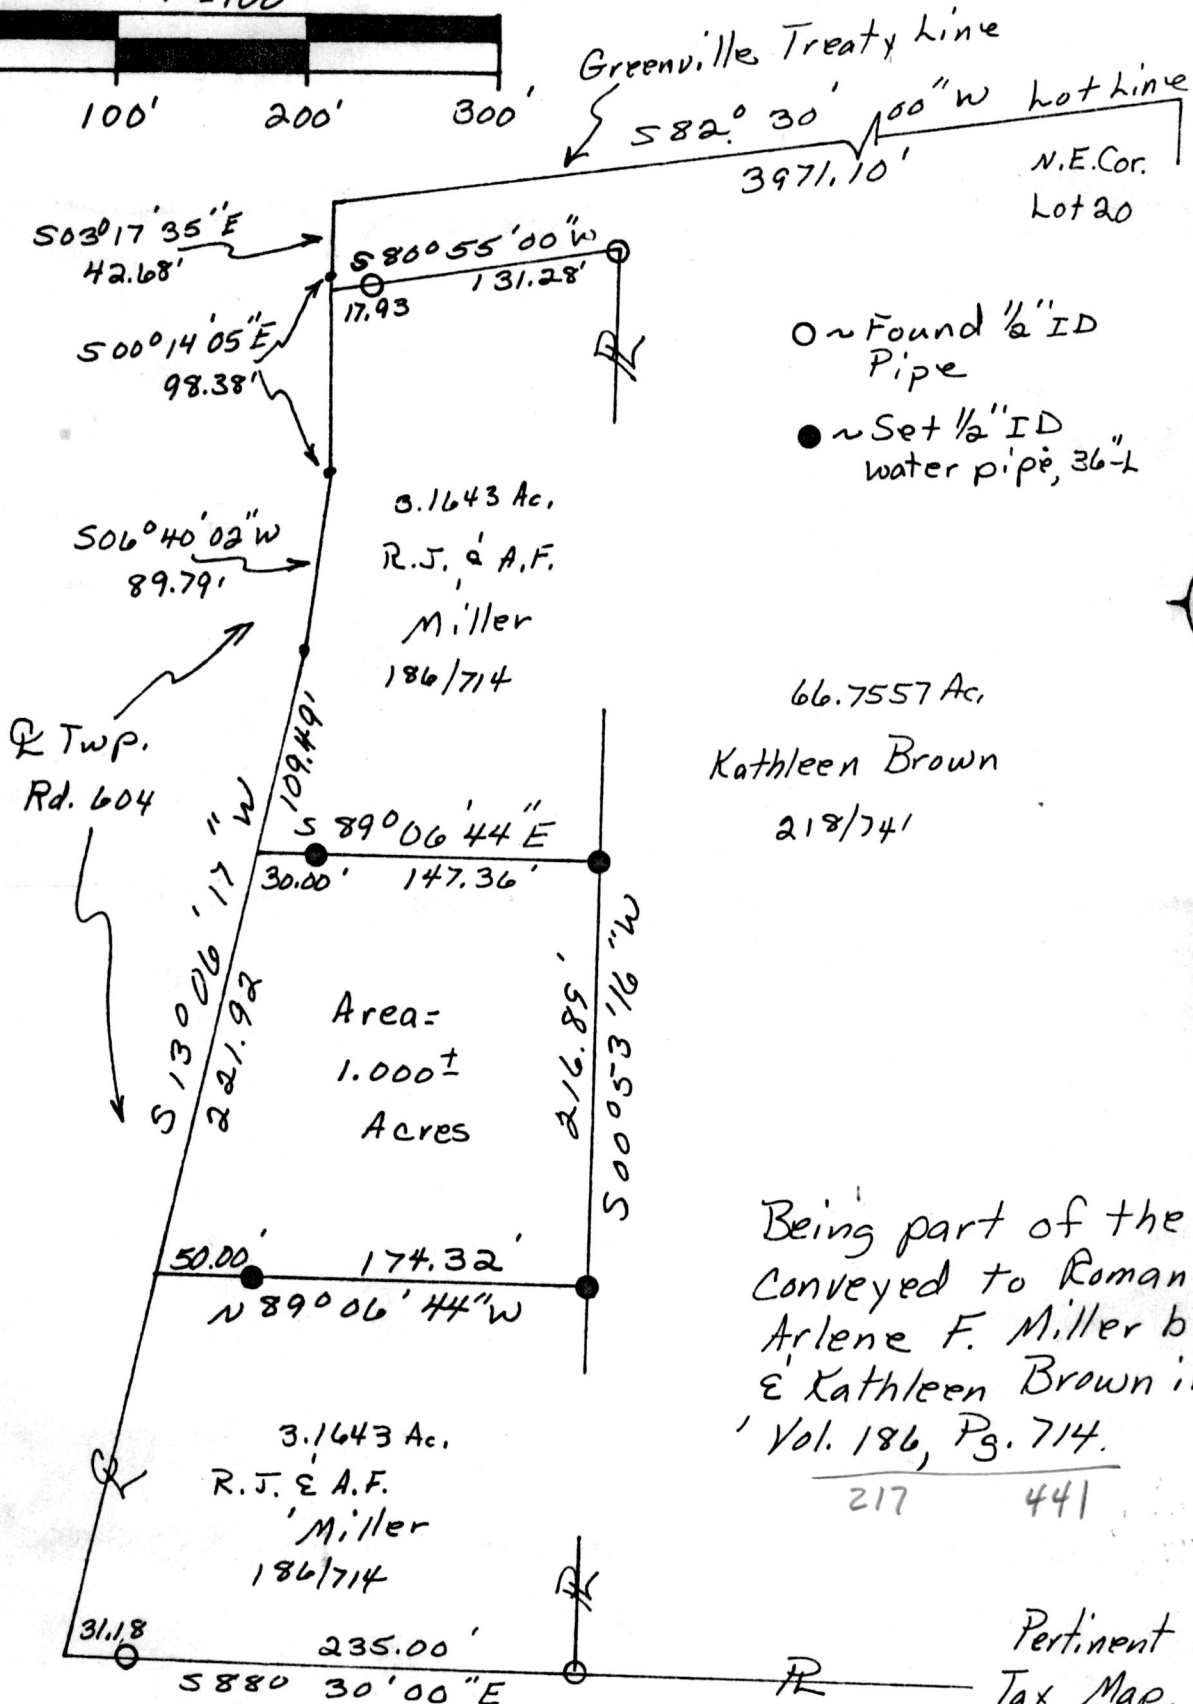 100' 200' 300'
Greenville Treaty Line
S82° 30' 00"W Lot Line
3971.10'
N.E.Cor.
Lot 20
S03°17'35"E
42.68'
S80°55'00"W
131.28'
17.93
S00°14'05"E
98.38'
PL
O ~ Found ½"ID
Pipe
● ~ Set ½"ID
water pipe, 36"L
S06°40'02"W
89.79'
3.1643 Ac.
R.J. & A.F.
Miller
186/714
66.7557 Ac,
Kathleen Brown
218/741
CL Twp.
Rd. 604
109.49'
S 89°06'44"E
30.00' 147.36'
S13°06'17"W
221.92
Area=
1.000±
Acres
216.89'
S00°53'16"W
50.00' 174.32'
N89°06'44"W
Being part of the
Conveyed to Roman
Arlene F. Miller b
& Kathleen Brown
Vol. 186, Pg. 714.
217 441
CL
3.1643 Ac.
R.J. & A.F.
Miller
186/714
PL
31.18 235.00'
S88° 30'00"E
PL
Pertinent
Tax Map.